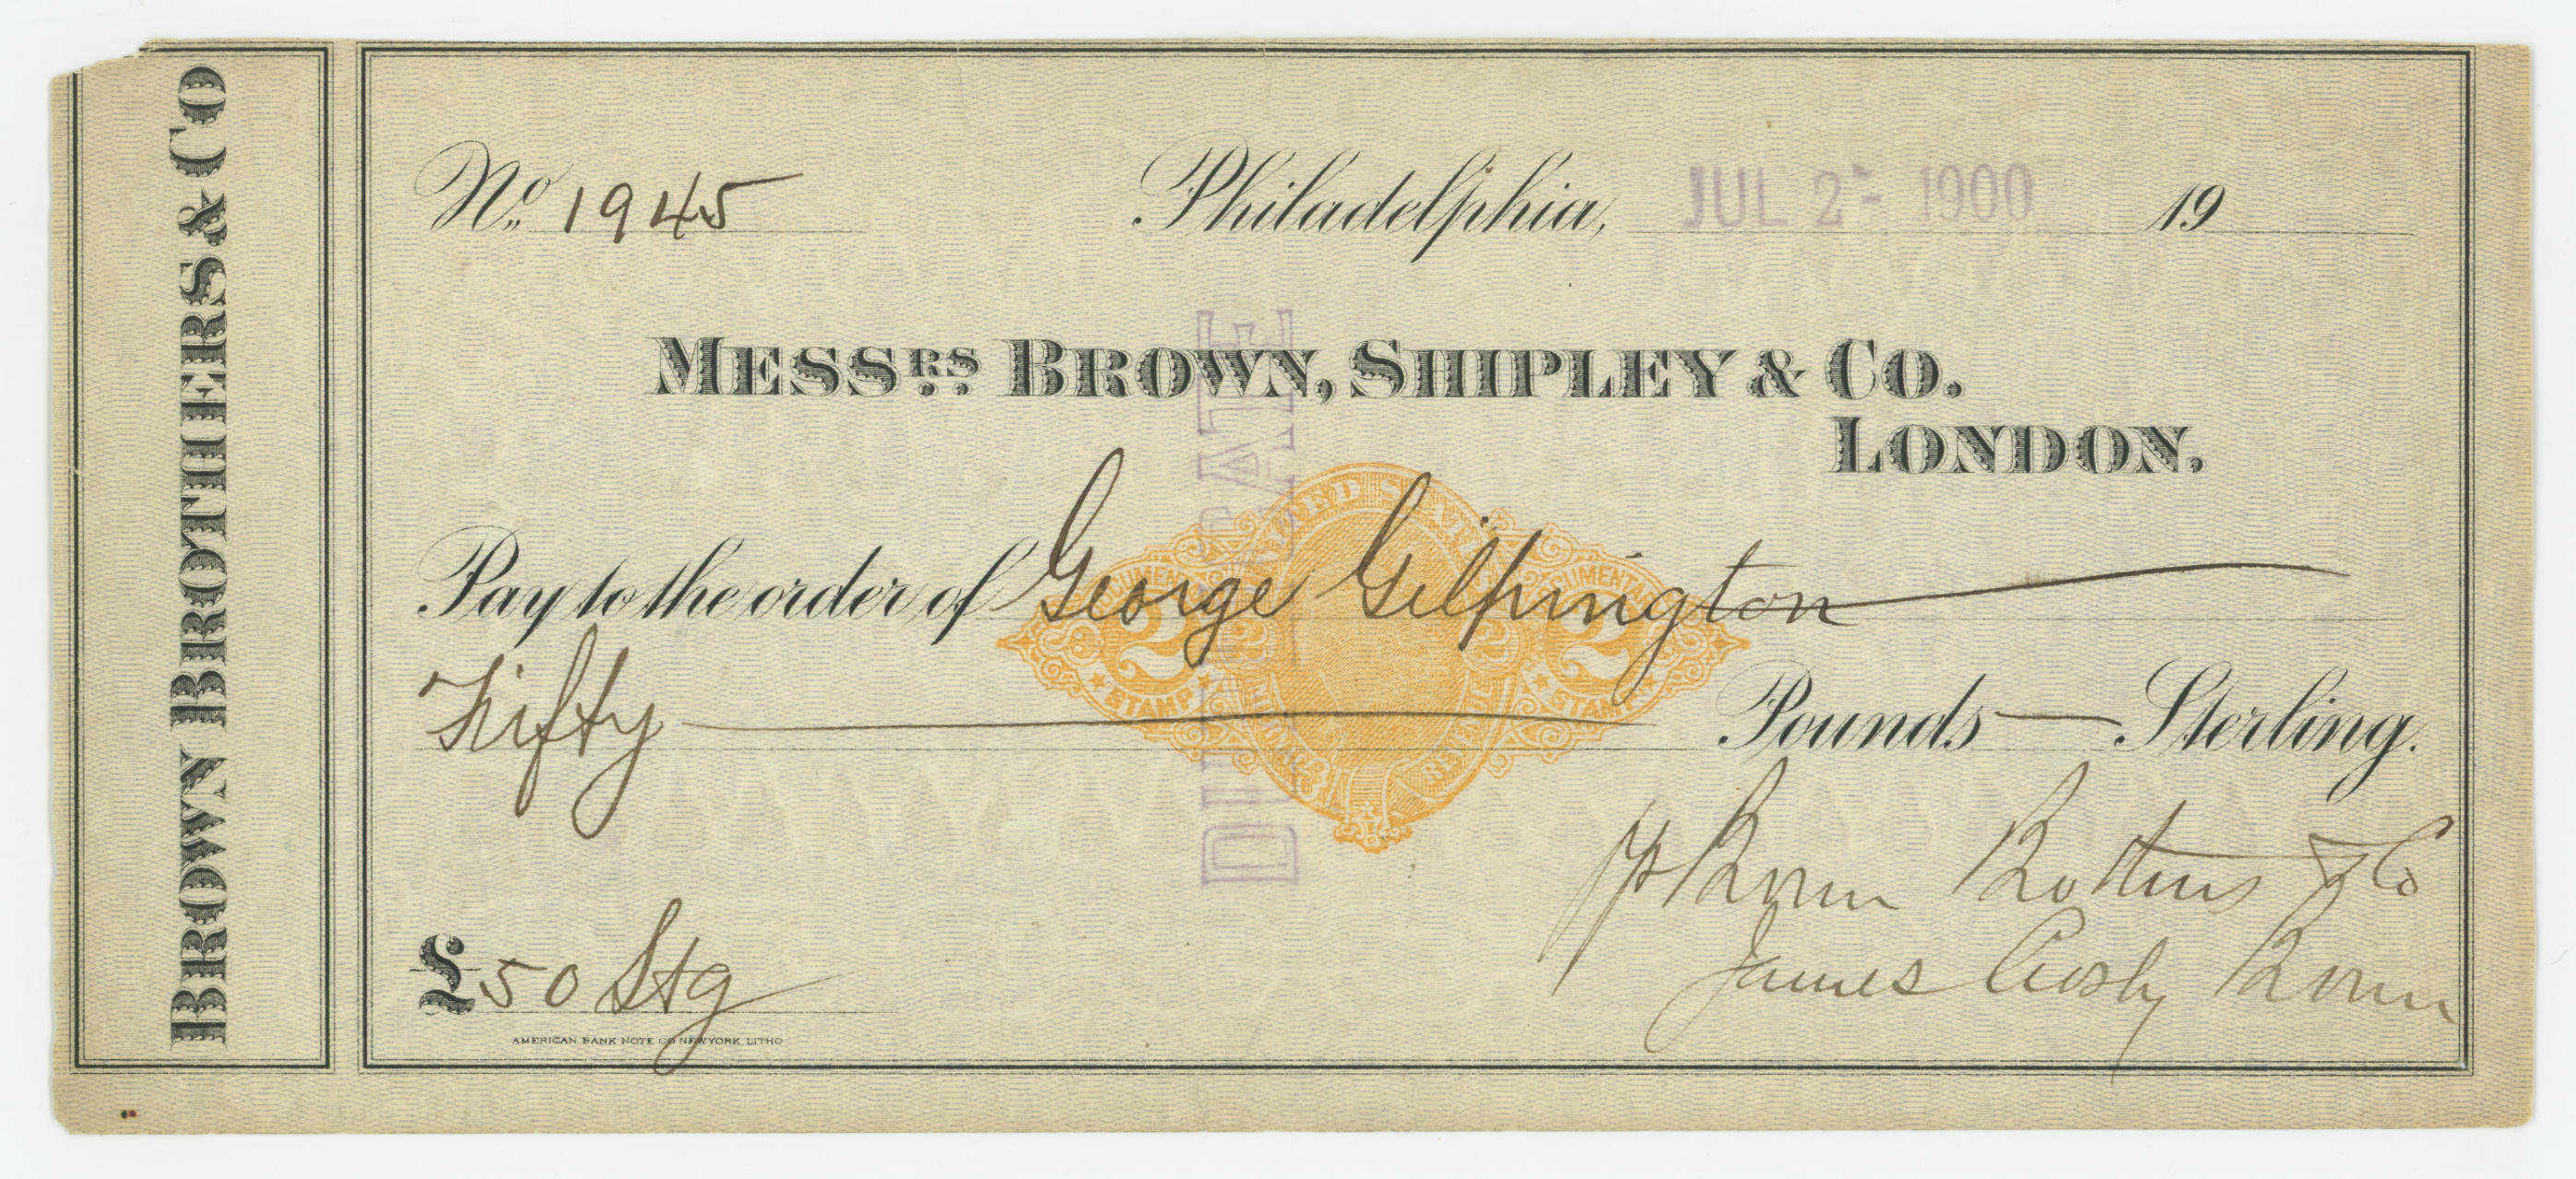 BROWN BROTHERS & CO
No. 1945 Philadelphia, JUL 2- 1900 19
MESSRS. BROWN, SHIPLEY & CO.
LONDON.
Pay to the order of George Gilpington
Fifty Pounds Sterling.
DUPLICATE
UNITED STATES
DOCUMENTARY DOCUMENTARY
2 2 2 2
STAMP STAMP
INTERNAL REVENUE
Brown Brothers & Co
James Crosby Brown
£50 Stg
AMERICAN BANK NOTE CO NEW YORK, LITHO